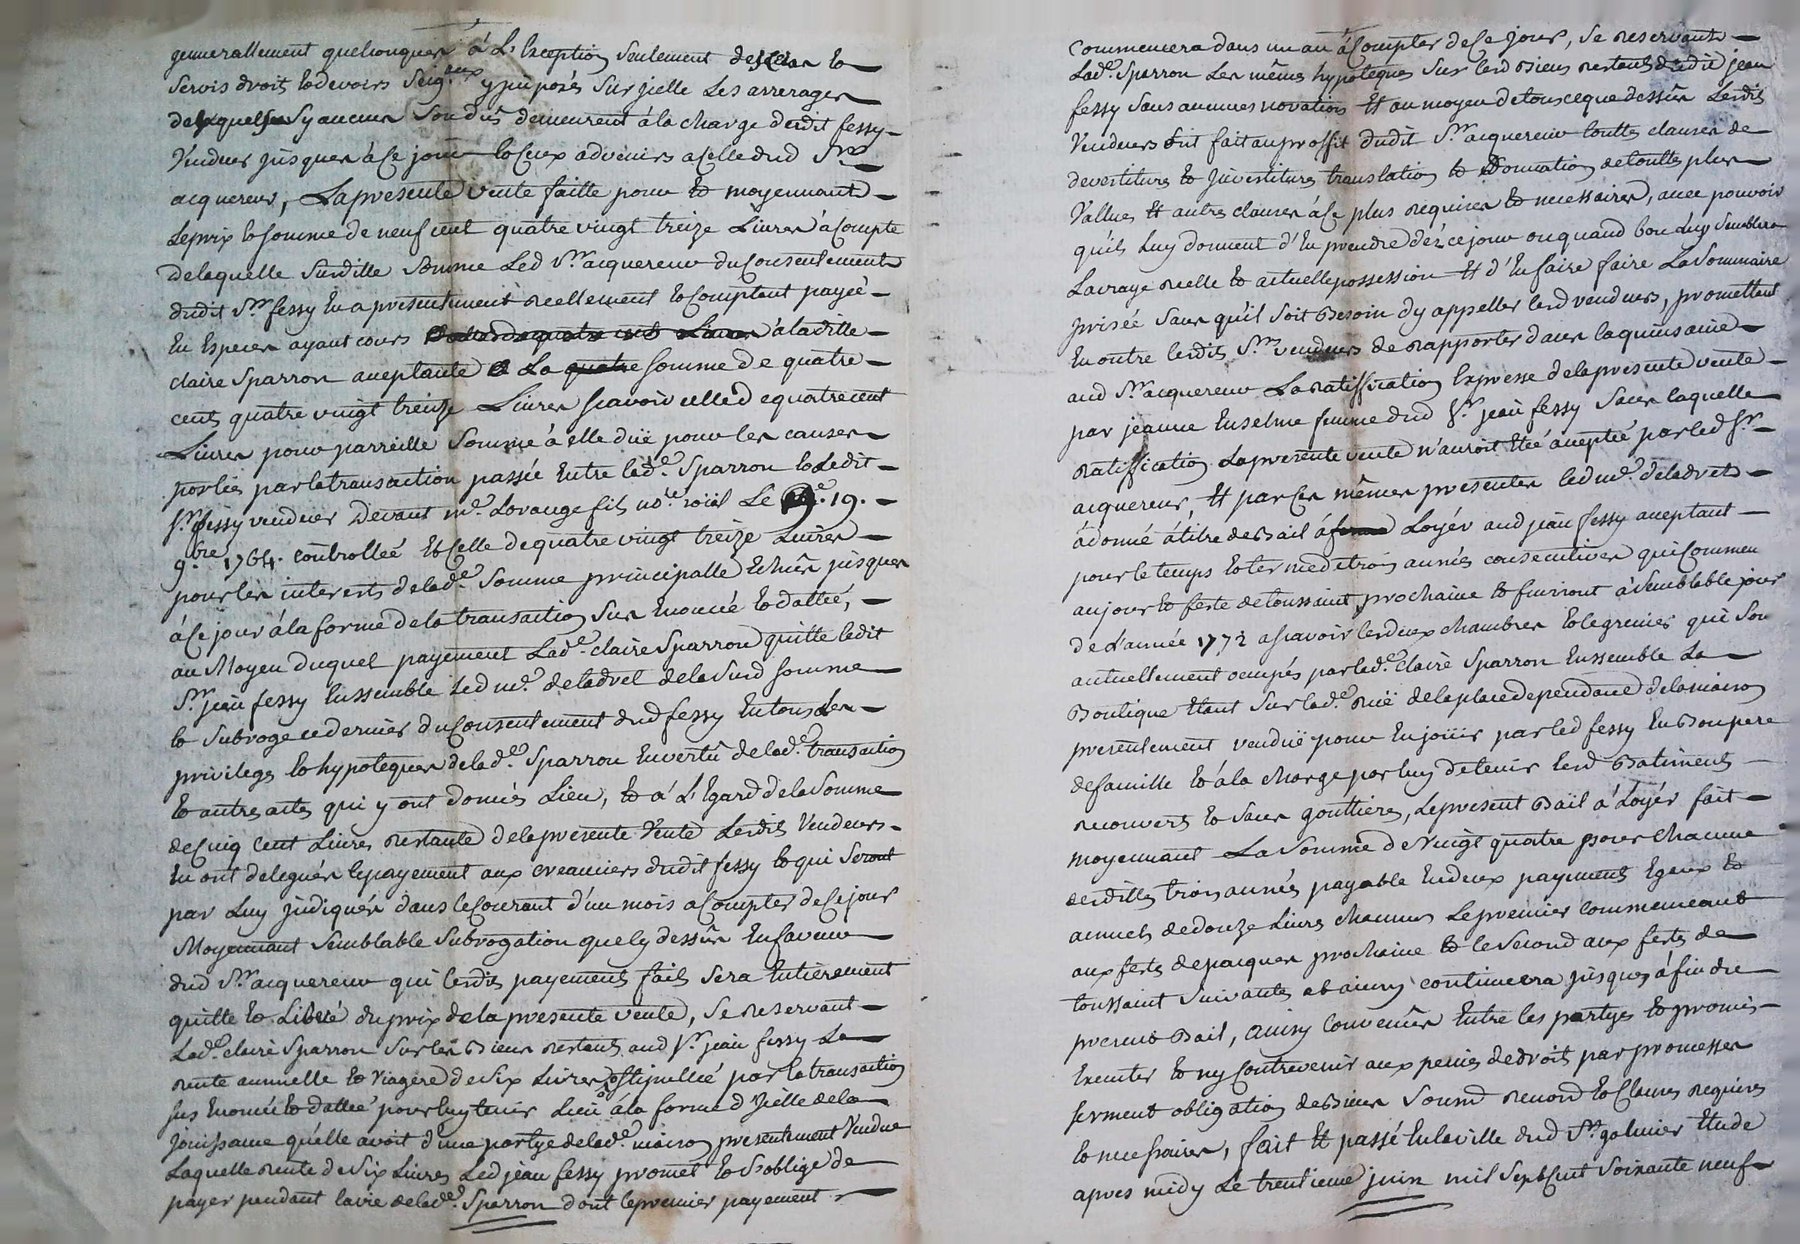 generallement quelconques à L'Exception seulement des cens et
servis droits et devoirs Seig.aux y imposés sur jcelle Les arrerages
desquels sy aucuns sont dus demeurent à la charge desdit fessy
Vendeurs jusques à ce jour et ceux advenirs a celle dud Sr
acquereur, La presente vente faitte pour et moyennant
Le prix et somme de neuf cent quatre vingt treize Livres à compte
de laquelle susditte somme Led Sr acquereur du consentement
dudit Sr fessy en a presentement reellement et comptant payée
En Especes ayant cours à laditte
claire Sparron aceptante La quatre somme de quatre
cent quatre vingt treize Livres scavoir celle de quatre cent
Livres pour parreille somme à elle düe pour les causes
portées par la transaction passée entre lad.e Sparron et Ledit
Sr fessy vendeur devant me. Lorange fils no.re roial Le 19.
9.bre 1764. controllée et celle de quatre vingt treize Livres
pour les interests de lad.e somme principalle Echus jusques
à ce jour à la forme de la transaction sus Enoncée et dattée,
au Moyen duquel payement Lad.e claire Sparron quitte ledit
Sr jean fessy Enssemble Led me. deladret de la susd somme
et subroge ce dernier du consentement dud fessy En tous Les
privileges et hypoteques de lad.e Sparron En vertu de lad.e transaction
et autre actes qui y ont donnés Lieu, et à L'Egard de la somme
de cinq cent Livres restante de la presente Vente Lesdits Vendeurs
En ont delegués le payement aux creanciers dudit fessy et qui seront
par Luy jndiqués dans le courant d'un mois a compter de ce jour
Moyennant semblable subrogation que cy dessus En faveur
dud Sr acquereur qui lesdits payements faits sera Entierement
quitte et Libré du prix de la presente vente, se reservant
Lad.e claire Sparron sur les Biens restants aud Sr jean fessy La
rente annuelle et viagere de six Livres stipullée par la transaction
sus Enoncée et dattée pour luy tenir Lieu à la forme d'jcelle de la
jouissance qu'elle avoit d'une partye de lad.e maison presentement Vendue
Laquelle rente de six Livres Led jean fessy promet et s'oblige de
payer pendant la vie de lad.e Sparron dont le premier payement
commencera dans un an à compter de ce jour, se reservant
Lad.e Sparron Les mêmes hypoteques sur lesd Biens restants dudit jean
fessy sans aucunes novation Et au moyen de tous ce que dessus Lesdits
Vendeurs ont fait au proffit dudit Sr acquereur touttes clauses de
devestiture et jnvestiture translation et Donnation de touttes plus
Vallues Et autres clauses à ce plus requises et necessaires, avec pouvoir
qu'ils Luy donnent d'En prendre dez ce jour ou quand bon Luy semblera
La vraye reelle et actuelle possession Et d'En faire faire La sommaire
prisée sans qu'il soit Besoin d'y appeller lesd vendeurs, promettant
En outre lesdits Srs vendeurs de rapporter dans la quinsaine
aud Sr acquereur La ratiffication Expresse de la presente vente
par jeanne Enselme femme dud Sr jean fessy sans laquelle
ratiffication La presente vente n'auroit Eté aceptée par led Sr
acquereur, Et par ces mêmes presentes led me. deladret
à donné à titre de Bail à Loyér aud jean fessy aceptant
pour le temps et terme de trois années consecutives qui commen
au jour et feste de toussaint prochaine et finiront à semblable jour
de L'année 1772 ascavoir les deux chambres et le grenier qui son
actuellement ocupés par lad.e claire Sparron Enssemble La
Boutique Etant sur lad.e rüe de la place dependant de la maison
presentement vendüe pour En joüir par led fessy En Bon pere
de famille et à la charge par luy de tenir lesd Batiments
recouvers et sans gouttieres, Le present Bail à Loyér fait
moyennant La somme de Vingt quatre pour chacune
desdittes trois années payable En deux payements Egaux et
annuels de douze Livres chacuns Le premier commenceant
aux festes de pacques prochaine et le second aux festes de
toussaint suivantes et ainsy continuera jusques à fin du
present Bail, ainsy convenus Entre les partyes et promis
Executer et ny contrevenir aux peines de droit par promesses
serment obligation de Biens soumd renond et clauses requises
et necessaires, fait Et passé En la ville dud St. galmier Etude
apres midy Le trentieme juin mil sept cent soixante neuf